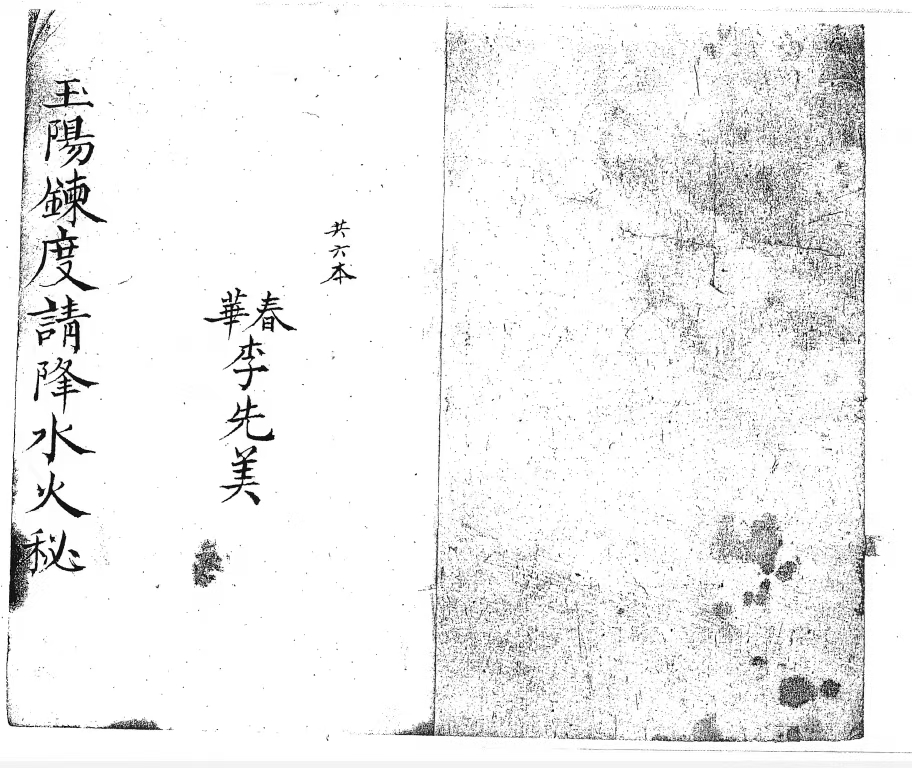 共六本
春華李先美
玉陽鍊度請降水火秘